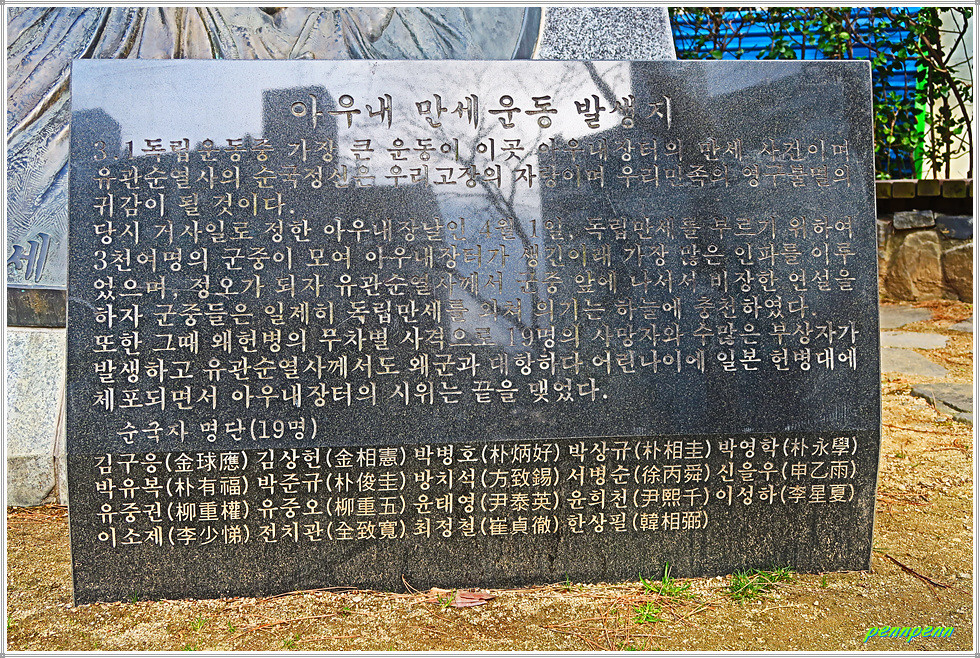 세
아우내 만세운동 발생지
3.1독립운동중 가장 큰 운동이 이곳 아우내장터의 만세 사건이며
유관순열사의 순국정신은 우리고장의 자랑이며 우리민족의 영구불멸의
귀감이 될 것이다.
당시 거사일로 정한 아우내장날인 4월 1일, 독립만세를 부르기 위하여
3천여명의 군중이 모여 아우내장터가 생긴이래 가장 많은 인파를 이루
었으며, 정오가 되자 유관순열사께서 군중 앞에 나서서 비장한 연설을
하자 군중들은 일제히 독립만세를 외쳐 의기는 하늘에 충천하였다.
또한 그때 왜헌병의 무차별 사격으로 19명의 사망자와 수많은 부상자가
발생하고 유관순열사께서도 왜군과 대항하다 어린나이에 일본 헌병대에
체포되면서 아우내장터의 시위는 끝을 맺었다.
순국자 명단(19명)
김구응(金球應) 김상헌(金相憲) 박병호(朴炳好) 박상규(朴相圭) 박영학(朴永學)
박유복(朴有福) 박준규(朴俊圭) 방치석(方致錫) 서병순(徐丙舜) 신을우(申乙雨)
유중권(柳重權) 유중오(柳重五) 윤태영(尹泰英) 윤희천(尹熙千) 이성하(李星夏)
이소제(李少悌) 전치관(全致寬) 최정철(崔貞徹) 한상필(韓相弼)
psnnpsnn